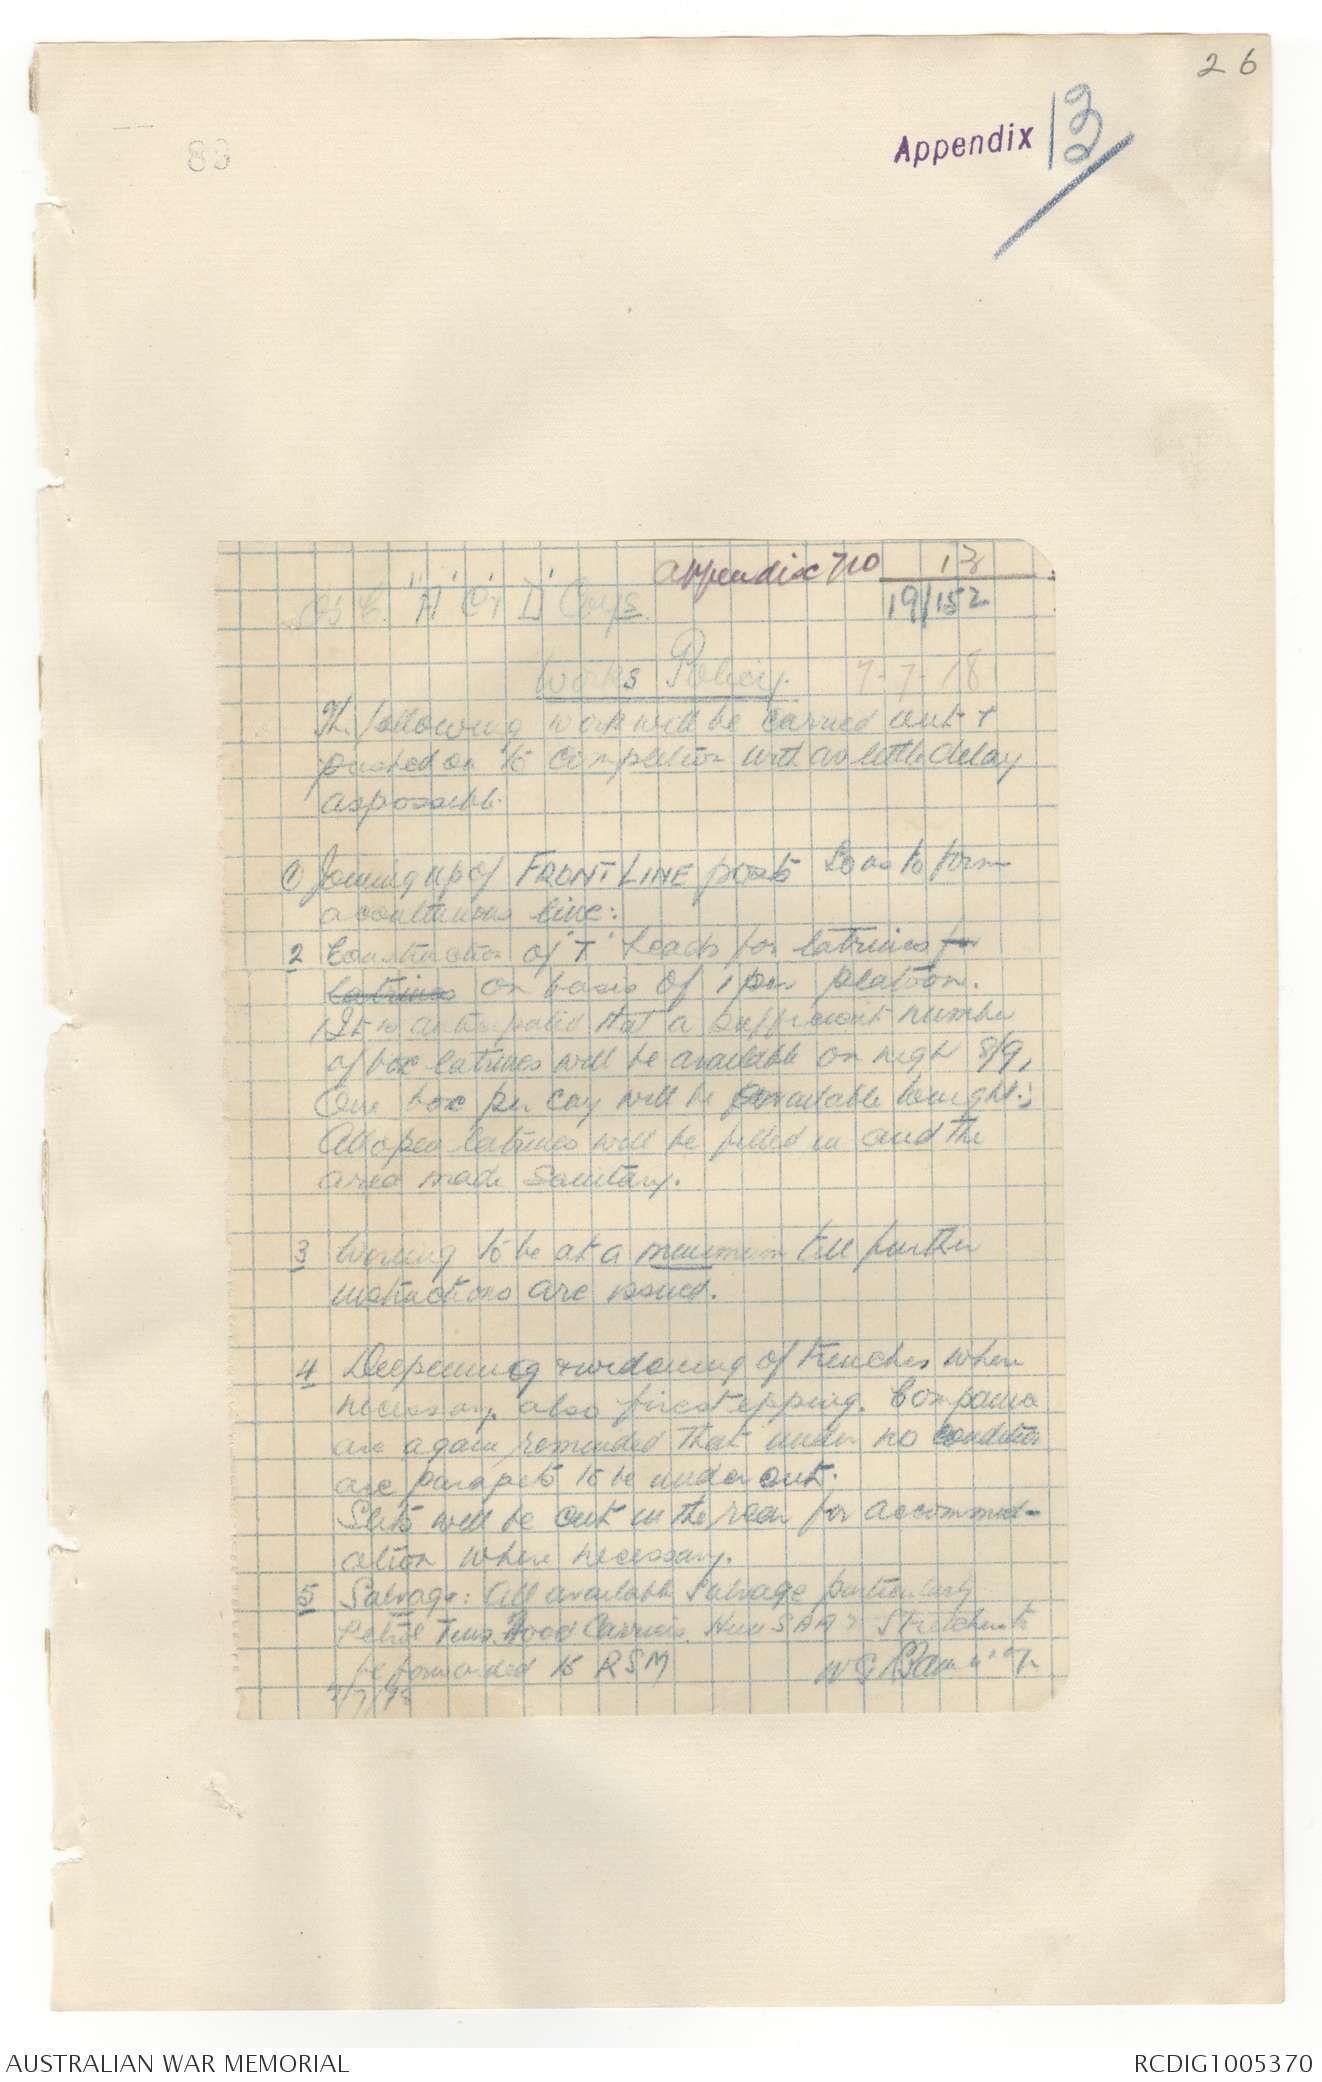 26
Appendix 13
83
Appendix No 13
19/152
"A" "C" "D" Coys.
Works Policy. 7-7-18
The following work will be carried out +
pushed on to completion with as little delay
as possible.
① Joining up of FRONT LINE posts so as to form
a continuous line:
2 Construction of "T" heads for latrines for
latrines on basis of 1 per platoon.
It is anticipated that a sufficient number
of box latrines will be available on night 8/9,
One box per coy will be available tonight.
All open latrines will be filled in and the
area made sanitary.
3 Wiring to be at a minimum till further
instructions are issued.
4 Deepening & widening of trenches where
necessary, also firestepping. Companies
are again reminded that under no condition
are parapets to be undercut.
Slits will be cut in the rear for accommod-
ation where necessary.
5 Salvage: All available Salvage particularly
Petrol Tins, Food Carriers, Hun SAA & Stretchers to
be forwarded to RSM
7/7/18
AUSTRALIAN WAR MEMORIAL
RCDIG1005370